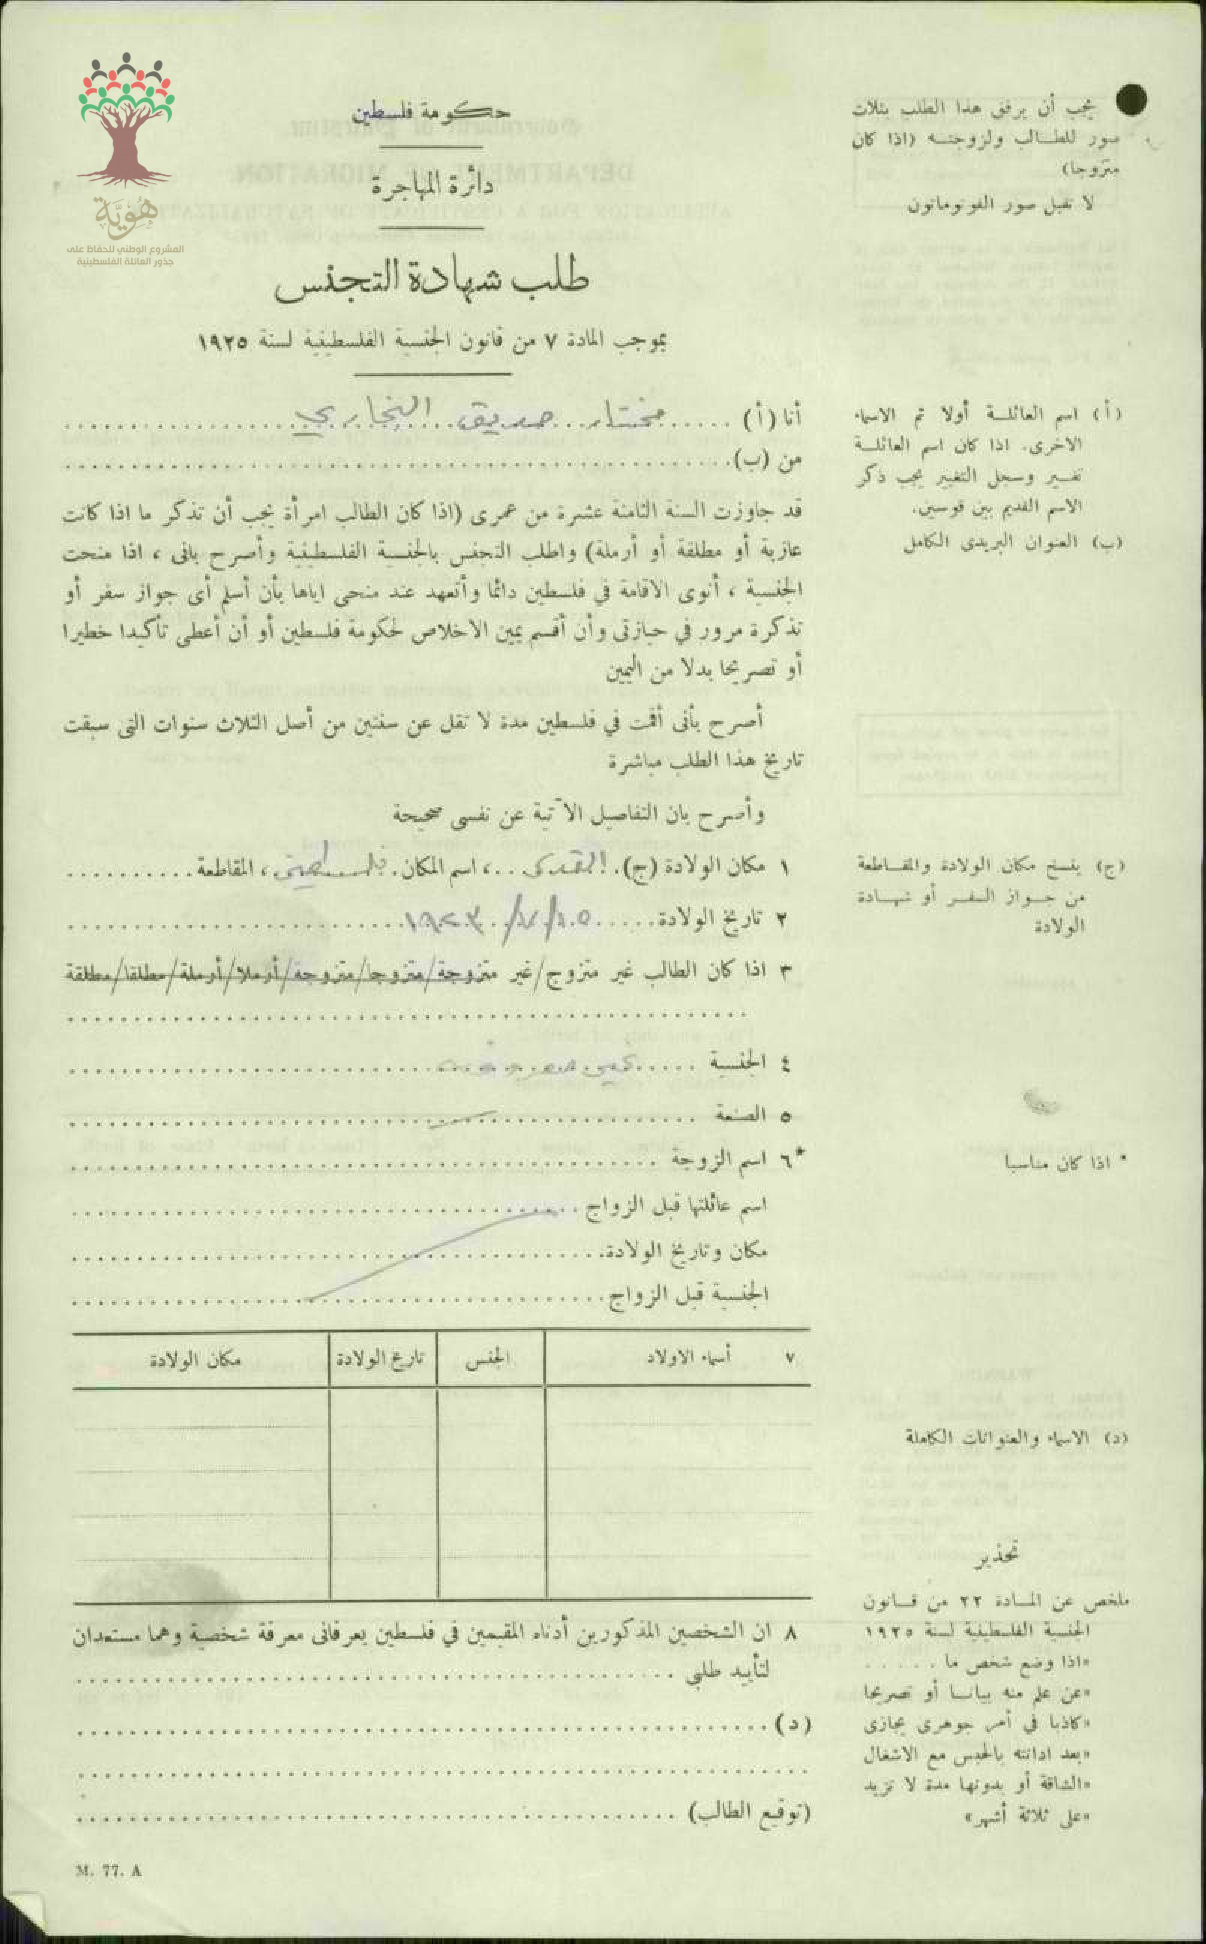 هُويَّة
المشروع الوطني للحفاظ على
جذور العائلة الفلسطينية
حكومة فلسطين
دائرة المهاجرة
طلب شهادة التجنس
بموجب المادة ٧ من قانون الجنسية الفلسطينية لسنة ١٩٢٥
يجب أن يرفق هذا الطلب بثلاث
صور للطالب ولزوجته (اذا كان
متزوجا)
لا تقبل صور الفوتوماتون
أنا (أ) مختار صديق البخاري
من (ب)
(أ) اسم العائلة أولا ثم الاسماء
الاخرى. اذا كان اسم العائلة
تغير وسجل التغيير يجب ذكر
الاسم القديم بين قوسين.
(ب) العنوان البريدى الكامل
قد جاوزت السنة الثامنة عشرة من عمرى (اذا كان الطالب امرأة يجب أن تذكر ما اذا كانت
عازبة أو مطلقة أو أرملة) واطلب التجنس بالجنسية الفلسطينية وأصرح بانى ، اذا منحت
الجنسية ، أنوى الاقامة في فلسطين دائما وأتعهد عند منحى اياها بأن أسلم أى جواز سفر أو
تذكرة مرور في حيازتى وأن أقسم يمين الاخلاص لحكومة فلسطين أو أن أعطى تأكيدا خطيرا
أو تصريحا بدلا من اليمين
أصرح بأنى أقمت في فلسطين مدة لا تقل عن سنتين من أصل الثلاث سنوات التى سبقت
تاريخ هذا الطلب مباشرة
وأصرح بان التفاصيل الآتية عن نفسى صحيحة
١ مكان الولادة (ج). القدس ، اسم المكان. فلسطين ، المقاطعة
(ج) ينسخ مكان الولادة والمقاطعة
من جواز السفر أو شهادة
الولادة
٢ تاريخ الولادة ١٩٢٣
٣ اذا كان الطالب غير متزوج/غير متزوجة/متزوجا/متزوجة/أرملا/أرملة/مطلقا/مطلقة
٤ الجنسية غير معروفة
٥ الصنعة
*٦ اسم الزوجة
* اذا كان مناسبا
اسم عائلتها قبل الزواج
مكان وتاريخ الولادة
الجنسية قبل الزواج
٧ أسماء الاولاد الجنس تاريخ الولادة مكان الولادة
(د) الاسماء والعنوانات الكاملة
٨ ان الشخصين المذكورين أدناه المقيمين في فلسطين يعرفانى معرفة شخصية وهما مستعدان
لتأييد طلبى
(د)
(توقيع الطالب)
تحذير
ملخص عن المادة ٢٢ من قانون
الجنسية الفلسطينية لسنة ١٩٢٥
«اذا وضع شخص ما . . . . .
«عن علم منه بيانا أو تصريحا
«كاذبا في أمر جوهرى يجازى
«بعد ادانته بالحبس مع الاشغال
«الشاقة أو بدونها مدة لا تزيد
«على ثلاثة أشهر»
M. 77. A